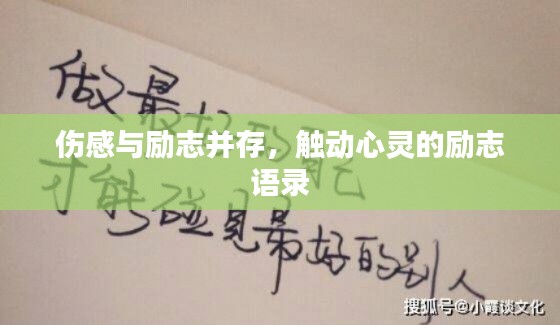 做最好
伤感与励志并存，触动心灵的励志
语录
才能碰见最好的别人
搜狐号@小霞谈文化